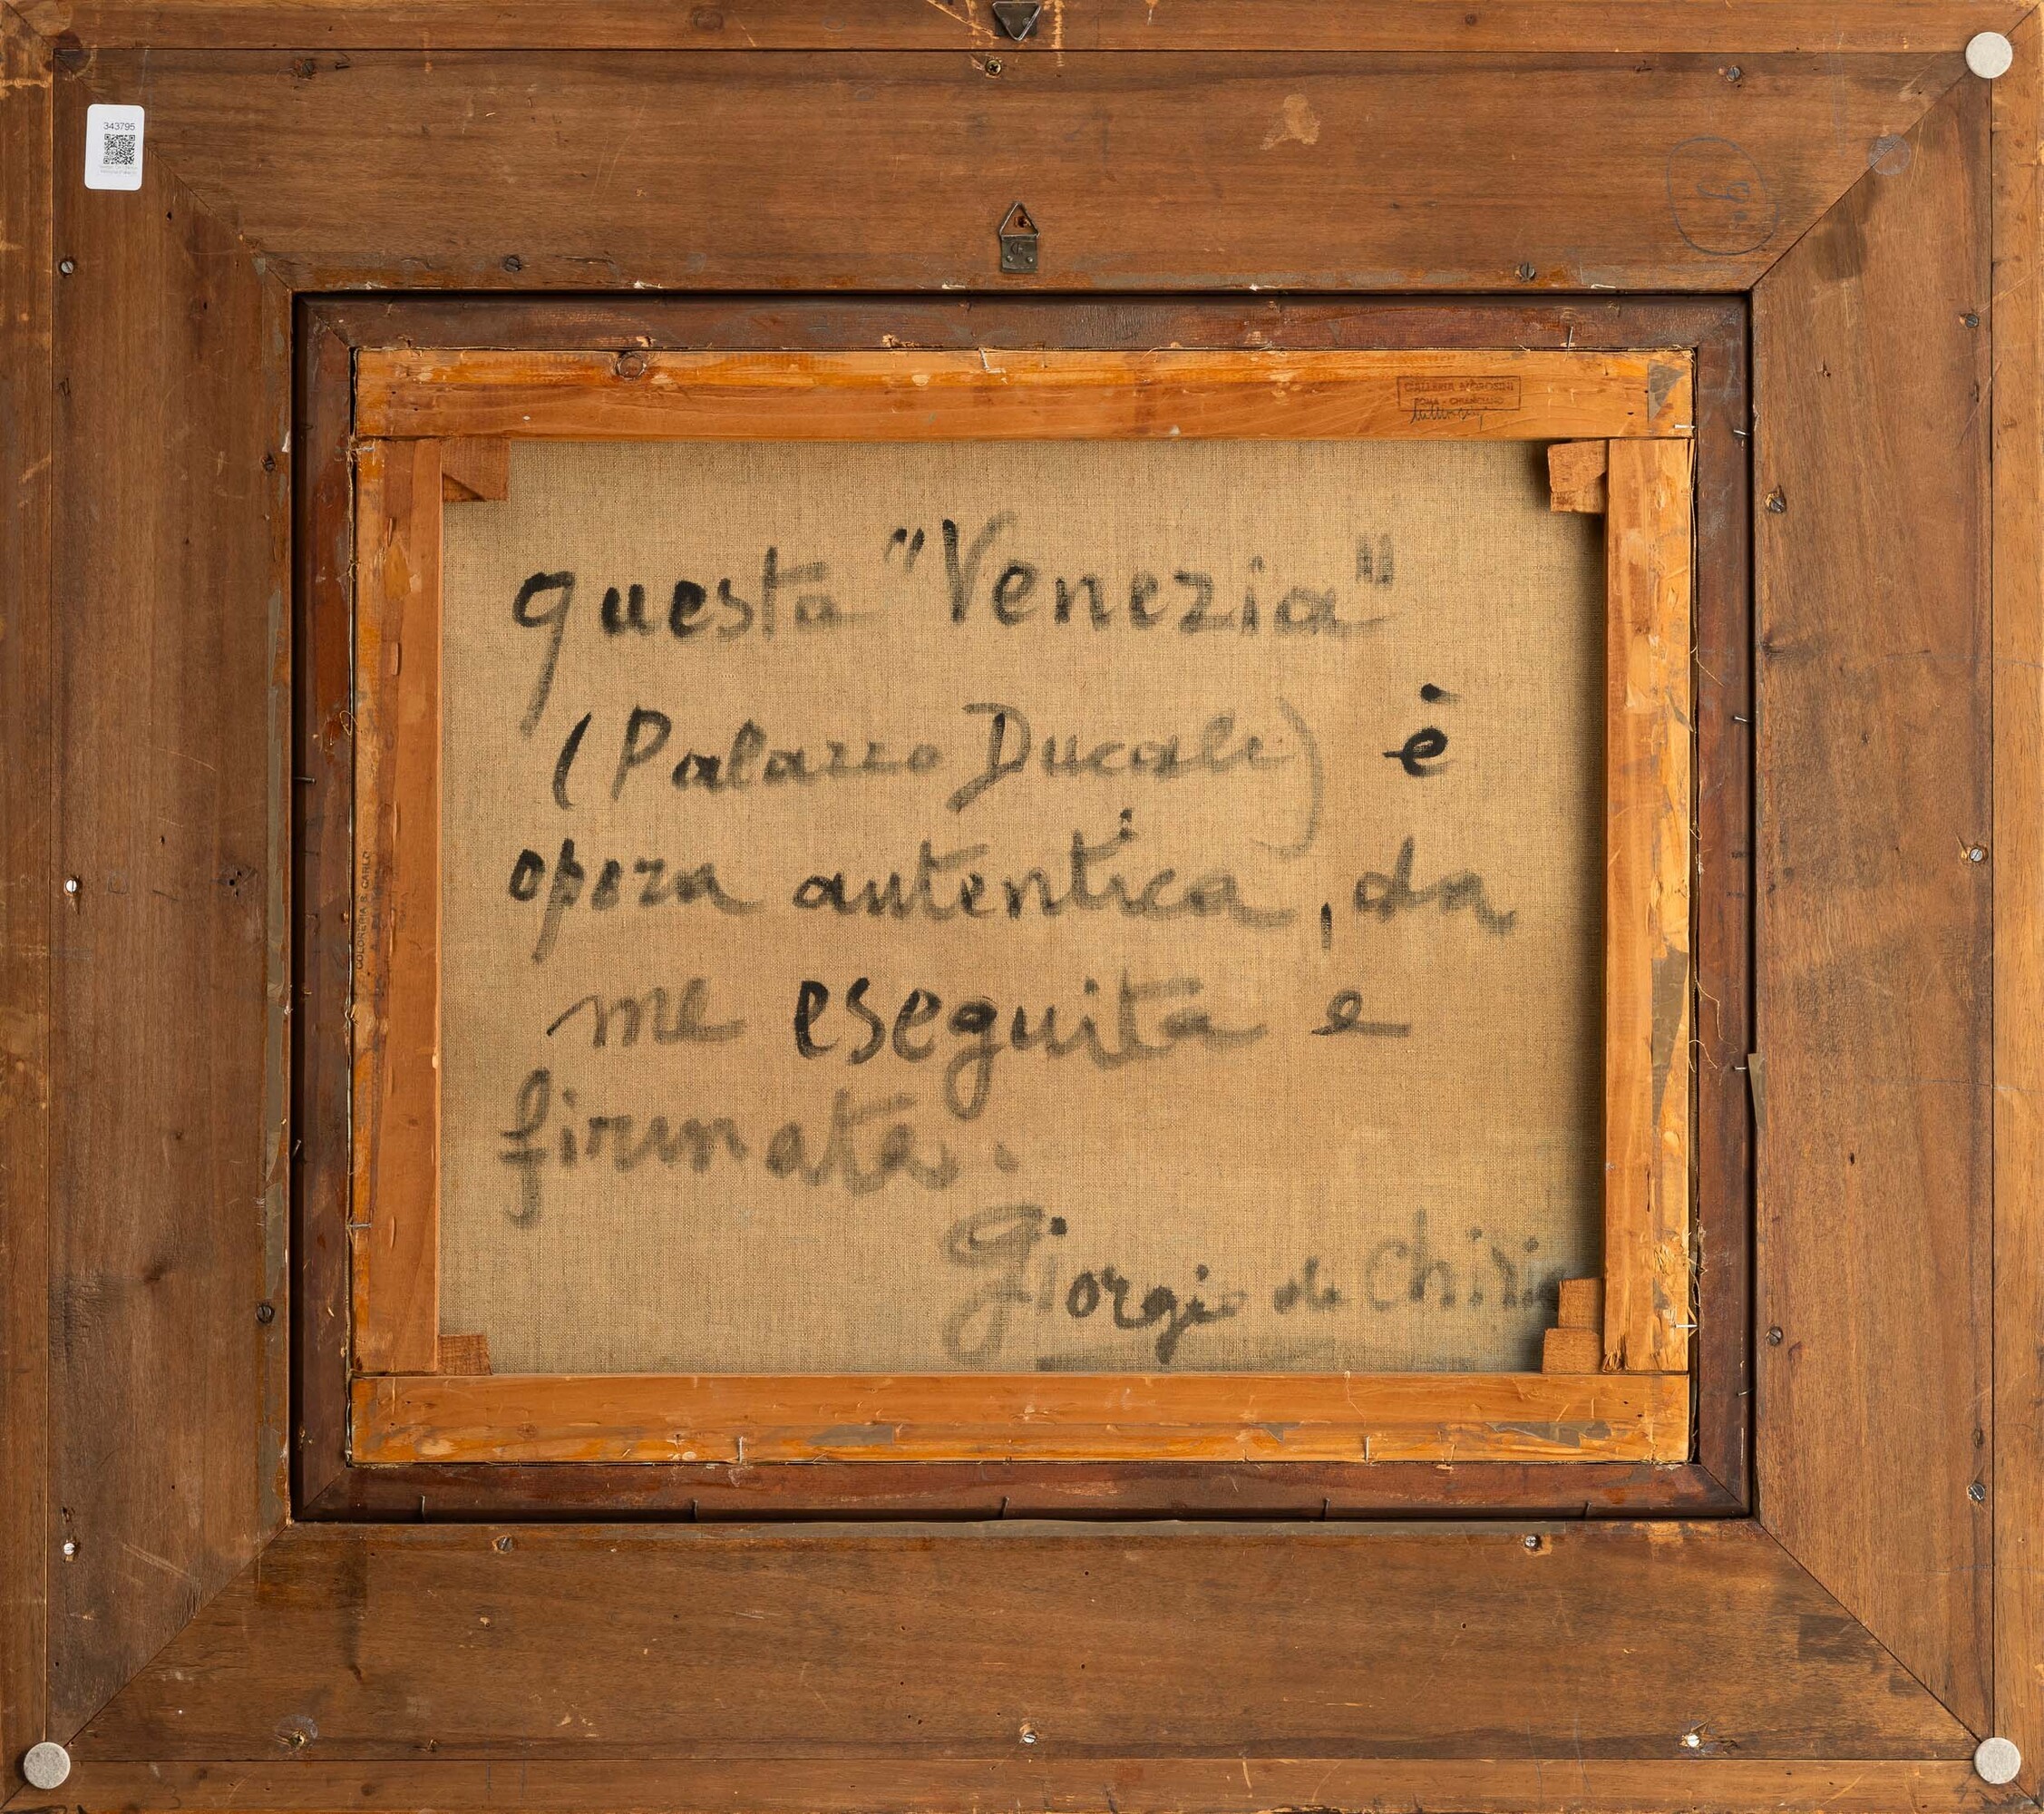 343795
GALLERIA MOROSINI
ROMA - CHIANCIANO
questa "Venezia"
(Palazzo Ducale) è
opera autentica, da
me eseguita e
firmata.
Giorgio de Chiri
COLORERIA S. CARLO